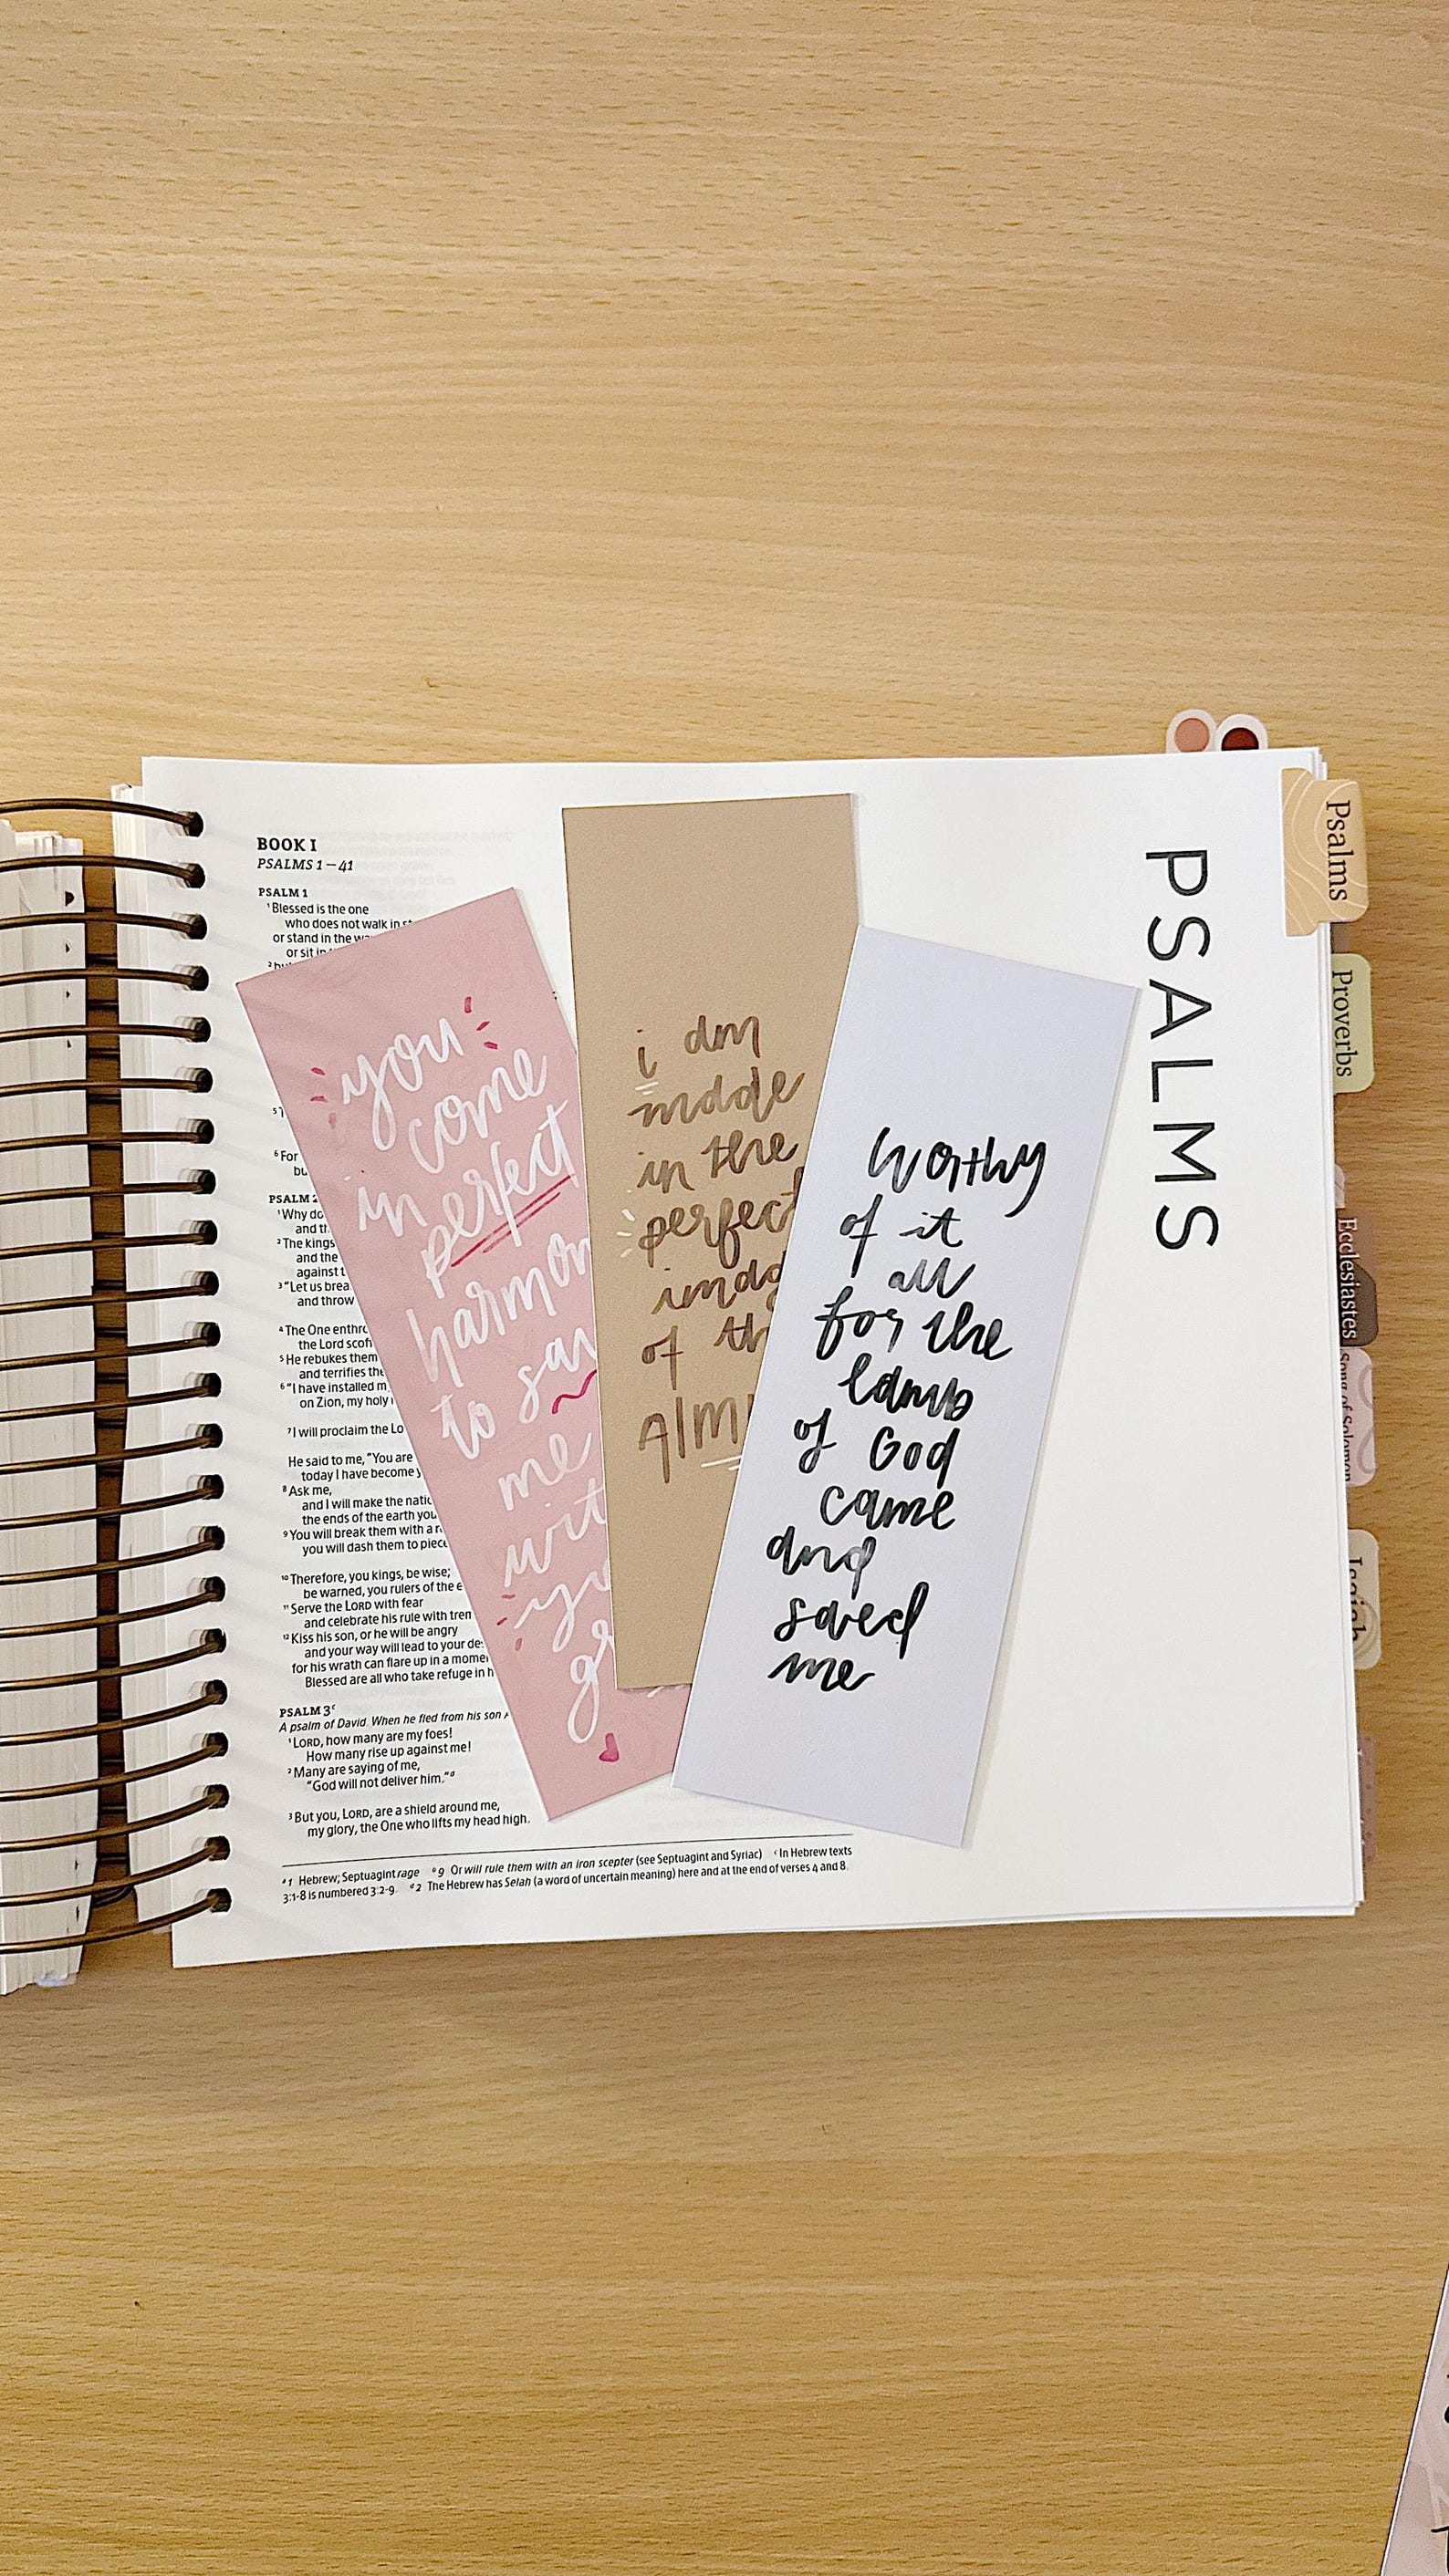 BOOK I
PSALMS 1–41
PSALM 1
¹Blessed is the one
who does not walk in
or stand in the
or sit
⁶For
PSALM
¹Why do
and
²The kings
and the
against
³“Let us
and throw
⁴The One
the Lord
⁵He rebukes them
and terrifies
⁶“I have installed
on Zion, my holy
⁷I will proclaim the
He said to me, “You are
today I have become
⁸Ask me,
and I will make the
the ends of the earth
⁹You will break them with a
you will dash them to
¹⁰Therefore, you kings, be wise;
be warned, you rulers of the
¹¹Serve the LORD with fear
and celebrate his rule with
¹²Kiss his son, or he will be angry
and your way will lead to your
for his wrath can flare up in a
Blessed are all who take refuge in
PSALM 3ᶜ
A psalm of David. When he fled from his son
¹LORD, how many are my foes!
How many rise up against me!
²Many are saying of me,
“God will not deliver him.”ᵈ
³But you, LORD, are a shield around me,
my glory, the One who lifts my head high.
ᵃ1 Hebrew; Septuagint rage ᵇ9 Or will rule them with an iron scepter (see Septuagint and Syriac) ᶜIn Hebrew texts
3:1-8 is numbered 3:2-9. ᵈ2 The Hebrew has Selah (a word of uncertain meaning) here and at the end of verses 4 and 8.
you
come
in perfect
to
me
i am
made
in the
perfect
of
worthy
of it
all
for the
lamb
of God
came
and
saved
me
PSALMS
Psalms
Proverbs
Ecclesiastes
Song of Solomon
Isaiah